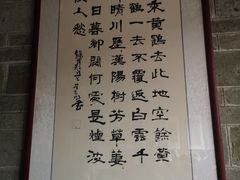 乘黃鶴去此地空餘黃
鶴一去不復返白雲千
晴川歷漢陽樹芳草萋
日暮鄉關何處是煙波
使人愁